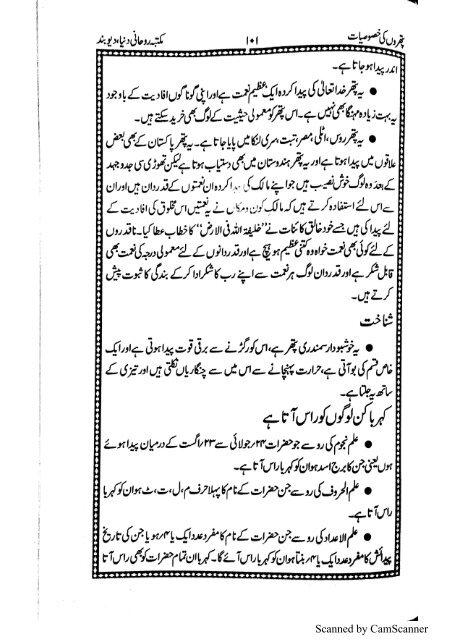 پتھروں کی خصوصیات ۱۰۱ مکتبہ روحانی دنیا، دیوبند
اندر پیدا ہو جاتا ہے۔
● یہ پتھر خدا تعالیٰ کی پیدا کردہ ایک عظیم نعمت ہے اور اپنی گوناگوں افادیت کے باوجود
یہ بہت زیادہ مہنگا بھی نہیں ہے۔ اس پتھر کو معمولی حیثیت کے لوگ بھی خرید سکتے ہیں۔
● یہ پتھر روس، اٹلی، مصر، تبت، سری لنکا میں پایا جاتا ہے۔ یہ پتھر پاکستان کے بھی بعض
علاقوں میں پیدا ہوتا ہے اور یہ پتھر ہندوستان میں بھی دستیاب ہوتا ہے لیکن تھوڑی سی جدوجہد
کے بعد وہ لوگ خوش نصیب ہیں جو اپنے مالک کی پیدا کردہ ان نعمتوں کے قدردان ہیں اور ان
سے اس لئے استفادہ کرتے ہیں کہ مالک کون و مکاں نے یہ نعمتیں اس مخلوق کی افادیت کے
لئے پیدا کی ہیں جسے خود خالق کائنات نے ”خلیفۃ اللہ فی الارض“ کا خطاب عطا کیا۔ ناقدروں
کے لئے کوئی بھی نعمت خواہ وہ کتنی عظیم ہو ہیچ ہے اور قدردانوں کے لئے معمولی درجہ کی نعمت بھی
قابل شکر ہے اور قدردان لوگ ہر نعمت سے اپنے رب کا شکر ادا کر کے بندگی کا ثبوت پیش
کرتے ہیں۔
شناخت
● یہ خوشبودار سمندری پتھر ہے، اس کو رگڑنے سے برقی قوت پیدا ہوتی ہے اور ایک
خاص قسم کی بو آتی ہے، حرارت پہنچانے سے اس میں سے چنگاریاں نکلتی ہیں اور تیزی کے
ساتھ یہ جلتا ہے۔
کہربا کن لوگوں کو راس آتا ہے
● علم نجوم کی رو سے جو حضرات ۲۴ جولائی سے ۲۳ اگست کے درمیان پیدا ہوئے
ہوں یعنی جن کا برج اسد ہو ان کو کہربا راس آتا ہے۔
● علم الحروف کی رو سے جن حضرات کے نام کا پہلا حرف م، ل، ت، ٹ ہو ان کو کہربا
راس آتا ہے۔
● علم الاعداد کی رو سے جن حضرات کے نام کا مفرد عدد ایک یا ۴ ہو یا جن کی تاریخ
پیدائش کا مفرد عدد ایک یا ۴ بنتا ہو ان کو کہربا راس آئے گا۔ کہربا ان تمام حضرات کو بھی راس آتا
Scanned by CamScanner